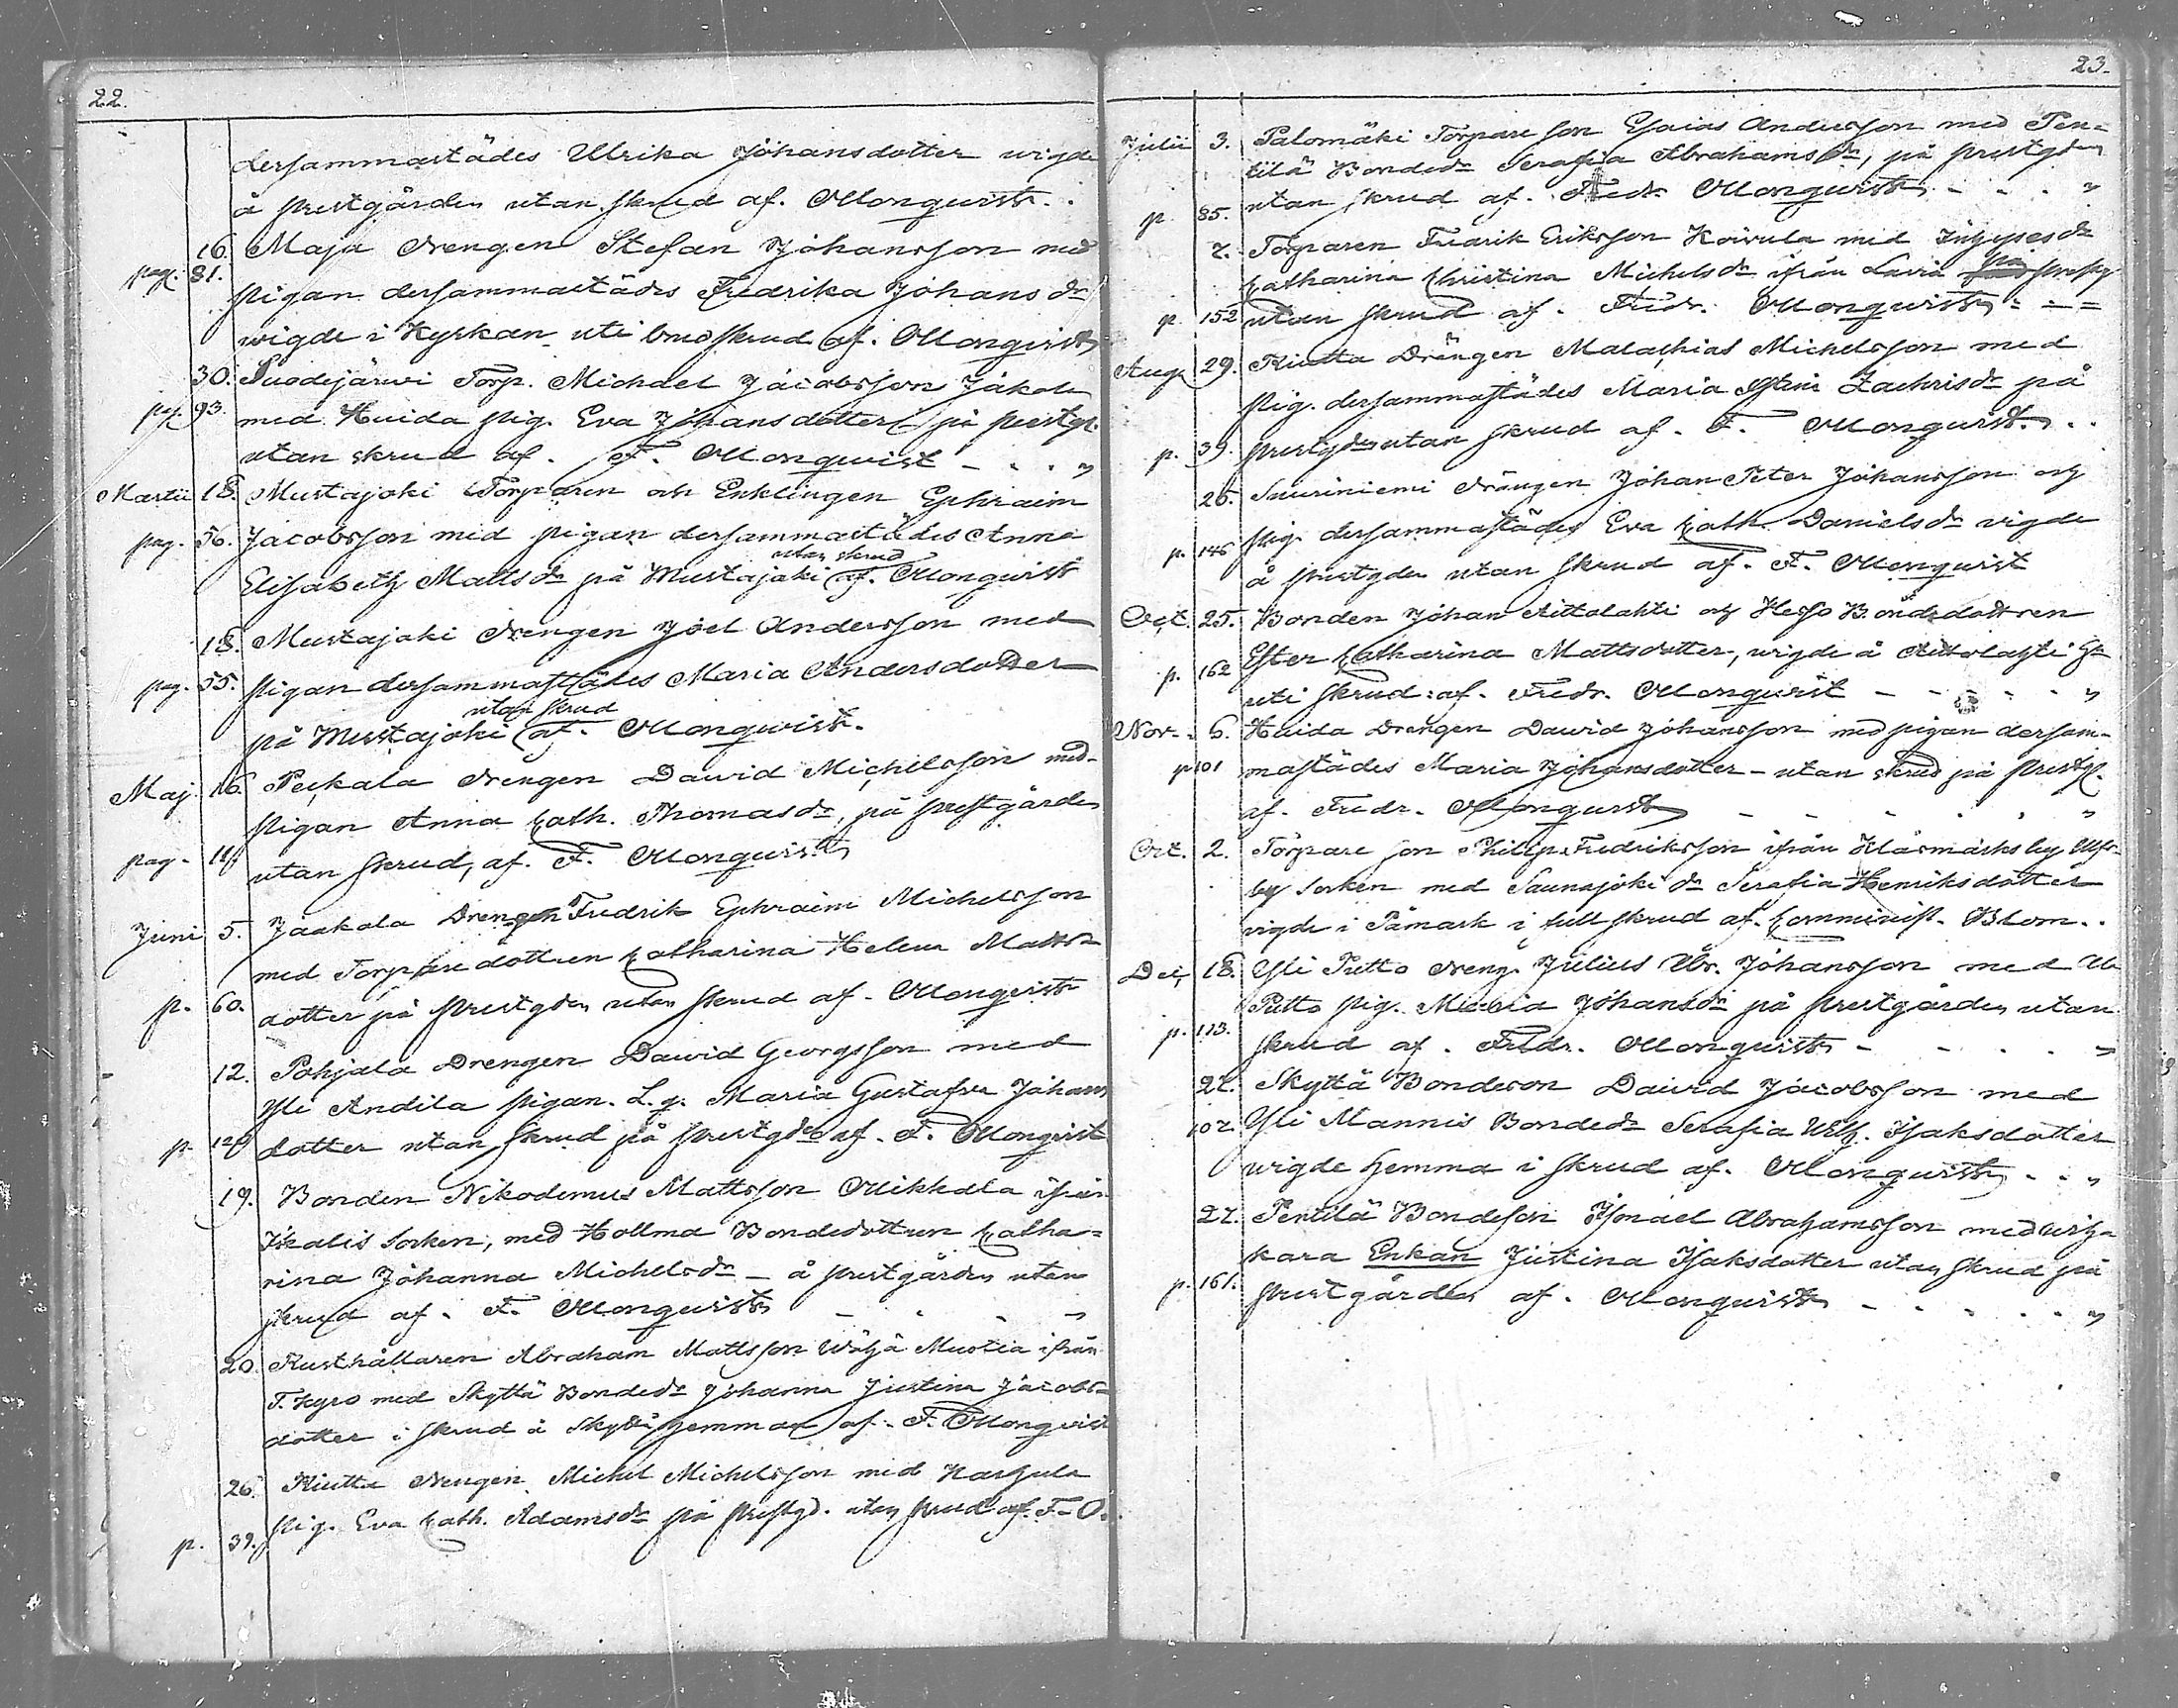 22.
dersammastädes Ulrika Johansdotter wigde
å prestgården utan skrud af. Monquist.
16. Maja drengen Stefan Johansson med
pag. 81. pigan dersammastädes Fredrika Johansdr
wigde i Kyrkan uti brudskrud af. Monqvist
30. Suodejärwi Torp. Michael Jacobsson Jakola
pag. 93. med Huida pig. Eva Johansdotter på prestg.
utan skrud af. F. Monqwist - . . "
Martii 18. Mustajoki Torparen och Enklingen Ephraim
pag. 56. Jacobsson med pigan dersammastädes Anna
utan skrud
Elisabeth Mattsdr på Mustajoki af. Monqwist
18. Mustajoki drengen Joel Andersson med
pag. 55. pigan dersammastädes Maria Andersdotter
utan skrud
på Mustajoki af. Monqwist.
Maj. 16. Peckala drengen David Michelsson med
pigan Anna Cath. Thomasdr, på prestgården
pag. utan skrud, af. F. Monqwist
Juni 5. Jaakola Drengen Fredrik Ephraim Michelsson
med Torparedottren Catharina Helena Matts-
p. 60. dotter på prestgden utan skrud af. Monqvist
12. Pohjala Drengen David Georgsson med
Yli Andila pigan. L. g. Maria Gustafva Johans
p. dotter utan skrud på prestgden af. F. Monqvist
19. Bonden Nikodemus Mattsson Mikkala ifrån
Ikalis Socken, med Hollma Bondedottren Catha-
rina Johanna Michelsdr - å prestgården utan
skrud af. F. Monqwist
20. Rusthållaren Abraham Mattsson Wähä Muotia ifrån
T. Kyro med Skyttä Bondedr Johanna Justina Jacobs-
dotter i skrud å Skyttä hemman af. F. Monqvist
26. Kiutta drengen Michel Michelsson med Harhula
p. 39. pig. Eva Cath. Adamsdr på prestgd. utan skrud af. F. O.
23.
Julii 3. Palomäki Torpare son Esaias Andersson med Pen-
tilä Bondedr Serafia Abrahamsdr, på prestgden
p. 85. utan skrud af. Fredr. Monqwist - . . "
2. Torparen Fredrik Eriksson Koivula med Inhysesdr
Catharina Christina Michelsdr ifrån Lavia på prestg
p. 152 utan skrud af. Fredr. Monqwist
Aug. 29. Kiutta Drängen Malachias Michelsson med
pig. dersammastädes Maria Stina Zachrisdr på
p. 39. prestgden utan skrud af. F. Monqwist. . .
26. Suuriniemi drängen Johan Peter Johansson och
p. 146 pig. dersammastädes Eva Cath. Danielsdr vigde
å prestgden utan skrud af. F. Monqwist
Oct. 25. Bonden Johan Aittolahti och Heiso Bondedottren
p. 162 Ester Catharina Mattsdotter, wigde å Aittolahti Hn
uti skrud af. Fredr. Monqwist - - - - "
Nov. 6. Huida Drengen Dawid Johansson med pigan dersam-
p. 101 mastädes Maria Johansdotter - utan skrud på prestg.
af. Fredr. Monqwist
Oct. 2. Torpare son Philip Fredriksson ifrån Klåsmarks by Ulfs-
by Socken med Saunajoki dr Serafia Henriksdotter
vigde i Påmark i full skrud af. Comminist. Blom.
Dec. 18. Yli Putto dreng. Julius Ubr. Johansson med Ala
Putto pig. Maria Johansdr på prestgården utan
p. 113. skrud af. Fredr. Monqwist -
27. Skyttä Bondeson David Jacobsson med
107. Yli Mannis Bondedr Serafia Ulr. Isaksdotter
wigde hemma i skrud af. Monqwist . . "
27. Pentilä Bondeson Ismael Abrahamsson med
kara Enkan Justina Isaksdotter utan skrud på
p. 161. prestgården af. Monqwist - - - "